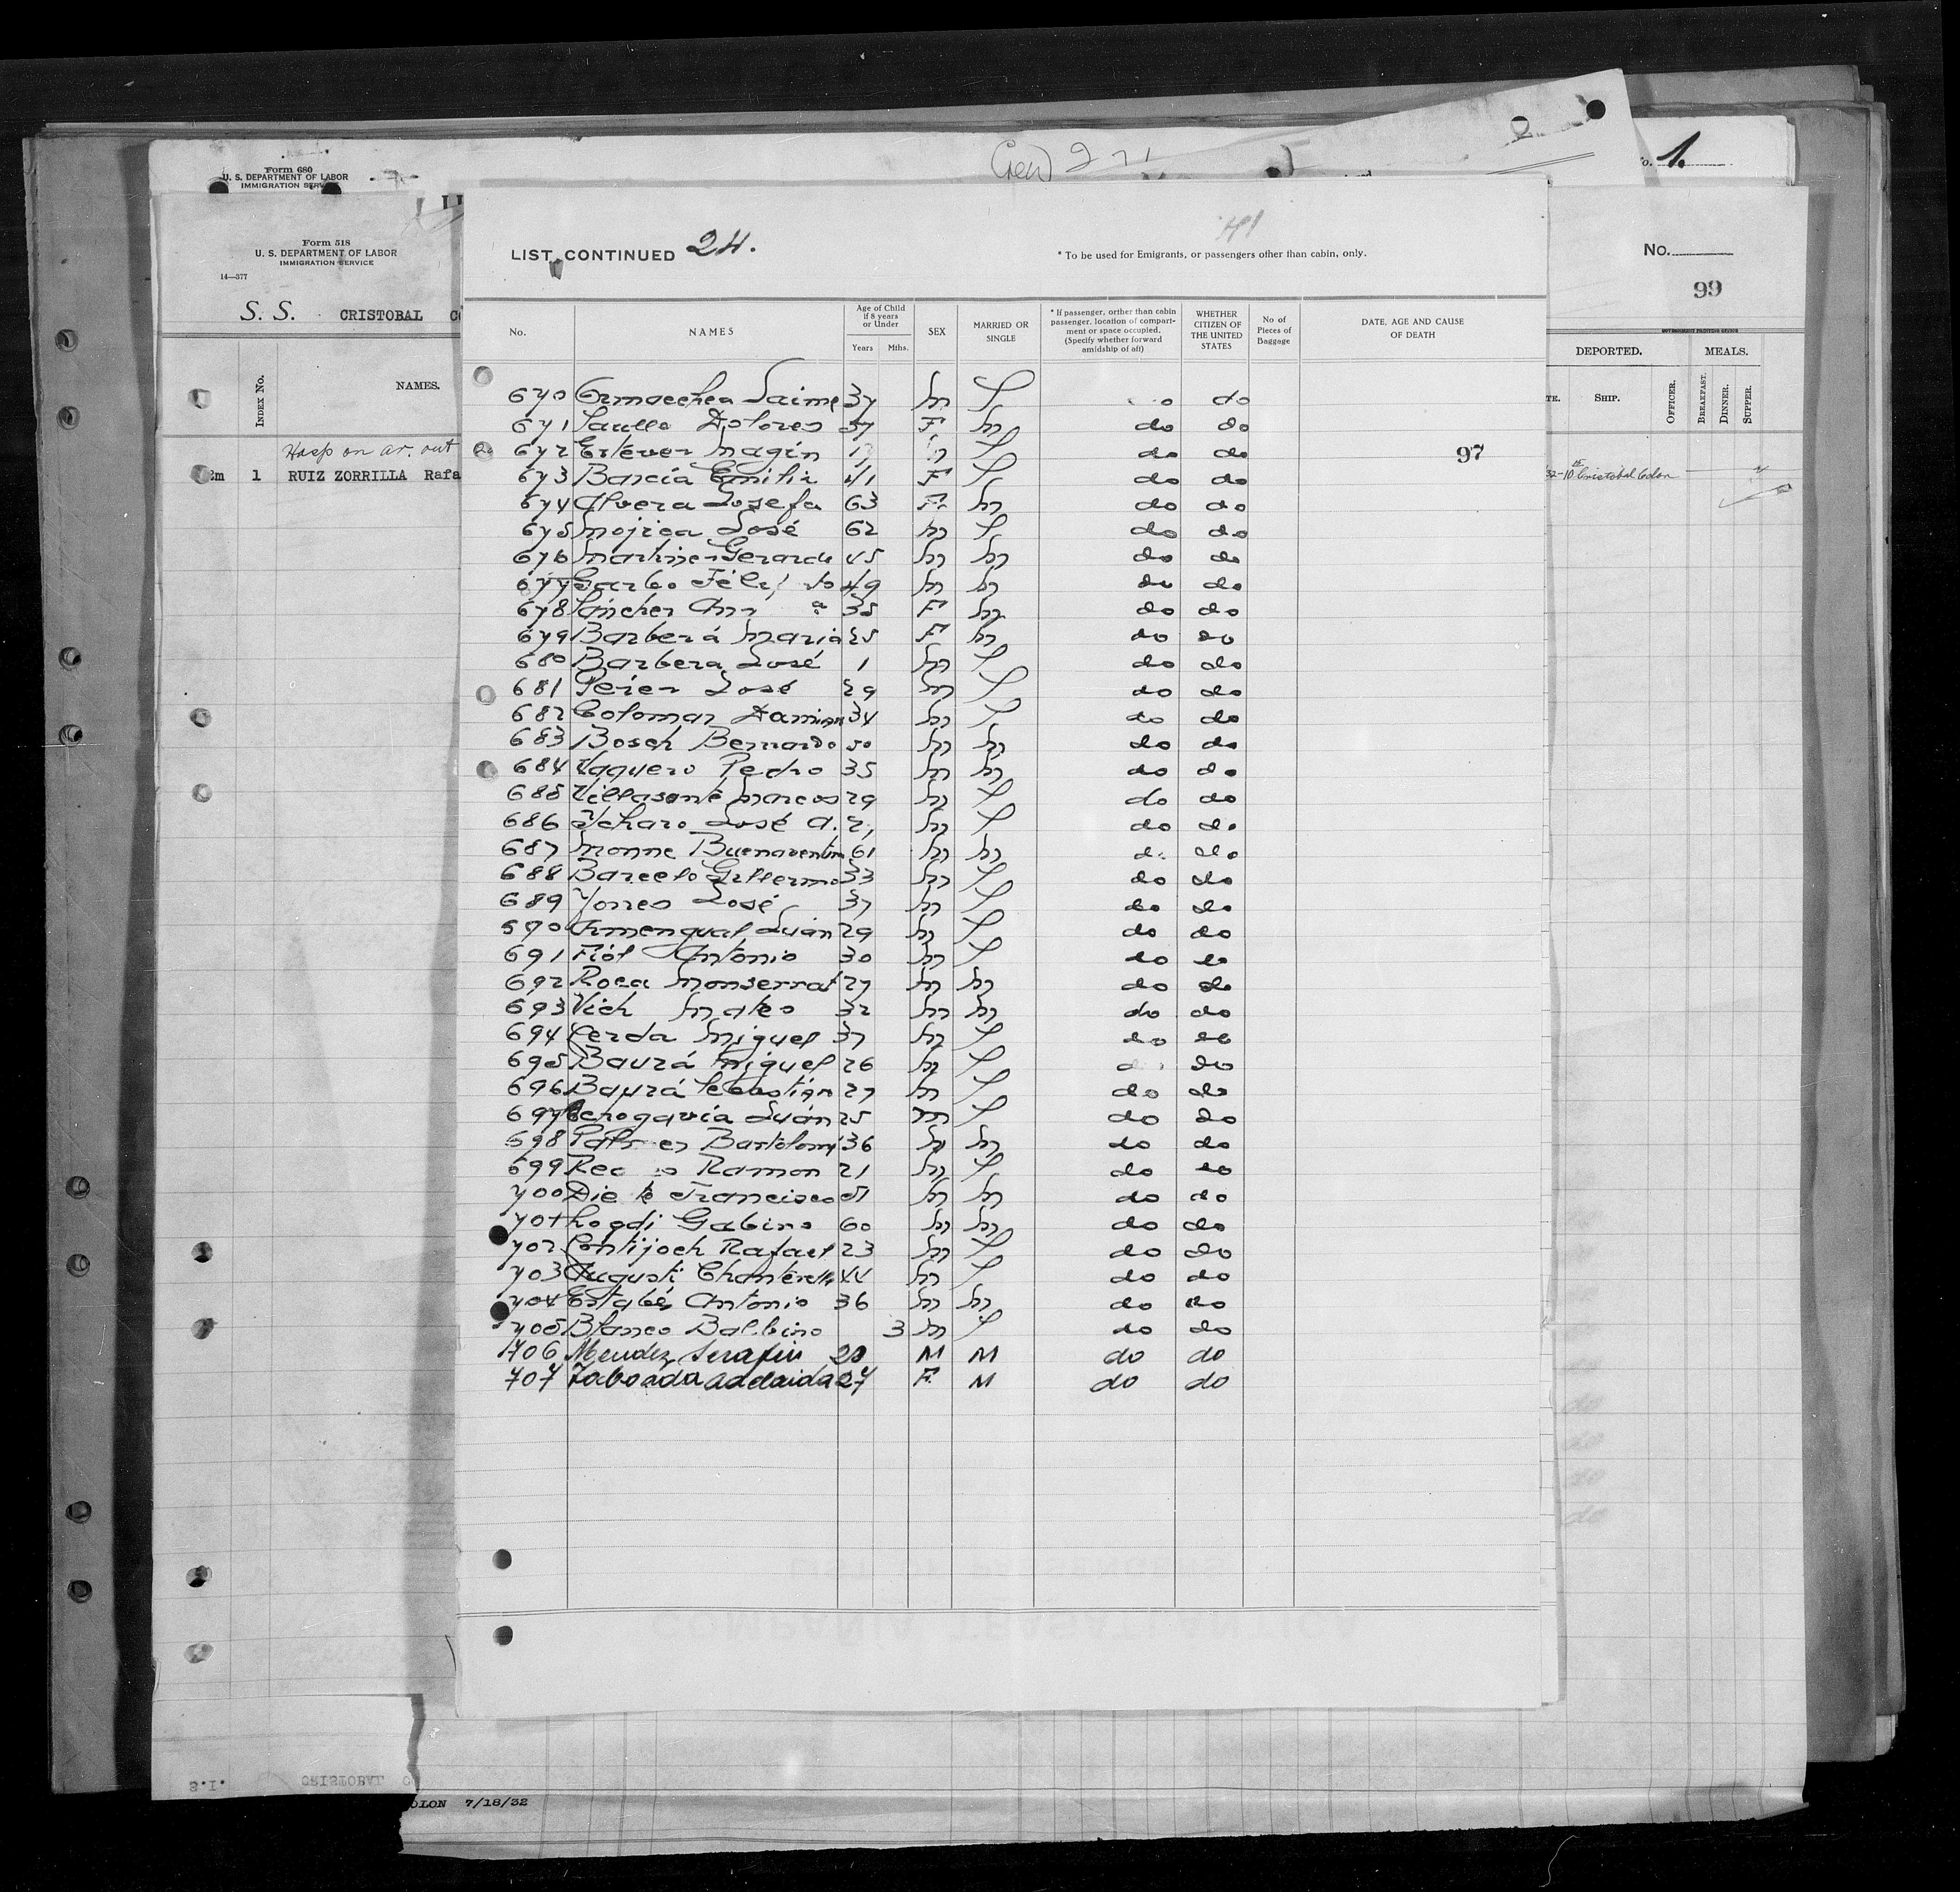 Form 680
U. S. DEPARTMENT OF LABOR
IMMIGRATION SERVICE
No. 1.
Form 518
U. S. DEPARTMENT OF LABOR
IMMIGRATION SERVICE
14—377
S. S. CRISTOBAL
INDEX No.
NAMES.
Hosp on ar. out
1 RUIZ ZORRILLA Rafa
No.
99
DEPORTED. MEALS.
SHIP. OFFICER. BREAKFAST. DINNER. SUPPER.
Cristobal Colon
LIST CONTINUED 24.
* To be used for Emigrants, or passengers other than cabin, only.
No. NAMES Age of Child if 8 years or Under Years Mths. SEX MARRIED OR SINGLE * If passenger, orther than cabin passenger, location of compartment or space occupied. (Specify whether forward amidship of aft) WHETHER CITIZEN OF THE UNITED STATES No of Pieces of Baggage DATE, AGE AND CAUSE OF DEATH
670 Ormaechea Jaime 37 M S do
671 Dolores 37 F M do do
672 Estévez Magin S do do
97
673 Barcia Emilia 41 F S do do
674 Alvera Josefa 63 F M do do
675 Mojica José 62 M S do do
676 Martinez Gerardo 45 M M do do
677 Garbo Félix 49 M M do do
678 Sánchez 35 F M do do
679 Barberá Maria 25 F M do do
680 Barbera José 1 M S do do
681 Perez José 29 M S do do
682 Colomar Damian 34 M S do do
683 Bosch Bernardo 50 M M do do
684 Vaquero Pedro 35 M M do do
685 Marcos 29 M S do do
686 José A. M S do do
687 Monne Buenaventura 61 M M do do
688 Barcelo Gillermo 33 M S do do
689 José 37 M S do do
690 Armengual Juan 29 M S do do
691 Fiól Antonio 30 M S do do
692 Roca Monserrat 27 M M do do
693 Vich Mateo 32 M M do do
694 Cerda Miguel 37 M S do do
695 Bauzá Miguel 26 M S do do
696 Bauzá Sebastián 27 M S do do
697 Juán 25 M S do do
698 Bartolomé 36 M M do do
699 Ramon 21 M S do do
700 Francisco 51 M M do do
701 Gabino 60 M M do do
702 Contijoch Rafael 23 M S do do
703 Augusti 44 M S do do
704 Estabé Antonio 36 M M do do
705 Blanco Balbino 3 M S do do
706 Mendez Serafin M M do do
707 Taboada Adelaida 27 F. M do do
7/18/32